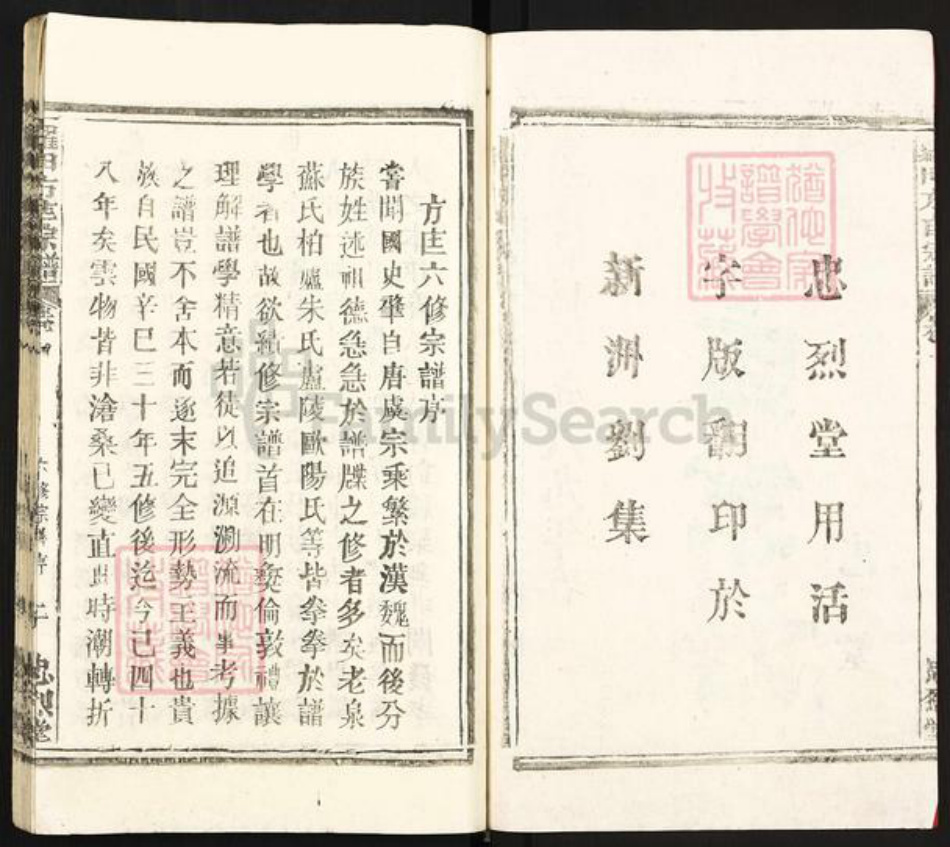 忠烈堂用活
字版翻印於
新洲劉集
方庄六修宗譜序
嘗聞國史肇自唐虞宗乘繁於漢魏而後分
族姓述祖德急急於譜牒之修者多矣老泉
蘇氏柏廬朱氏廬陵歐陽氏等皆拳拳於譜
學者也故欲續修宗譜首在明彝倫敦禮讓
理解譜學精意若徒以追源溯流而事考據
之譜豈不舍本而逐末完全形勢主義也貴
族自民國辛巳三十年五修後迄今已四十
八年矣雲物皆非滄桑已變直此時潮轉折
六修宗譜序
忠烈堂
FamilySearch